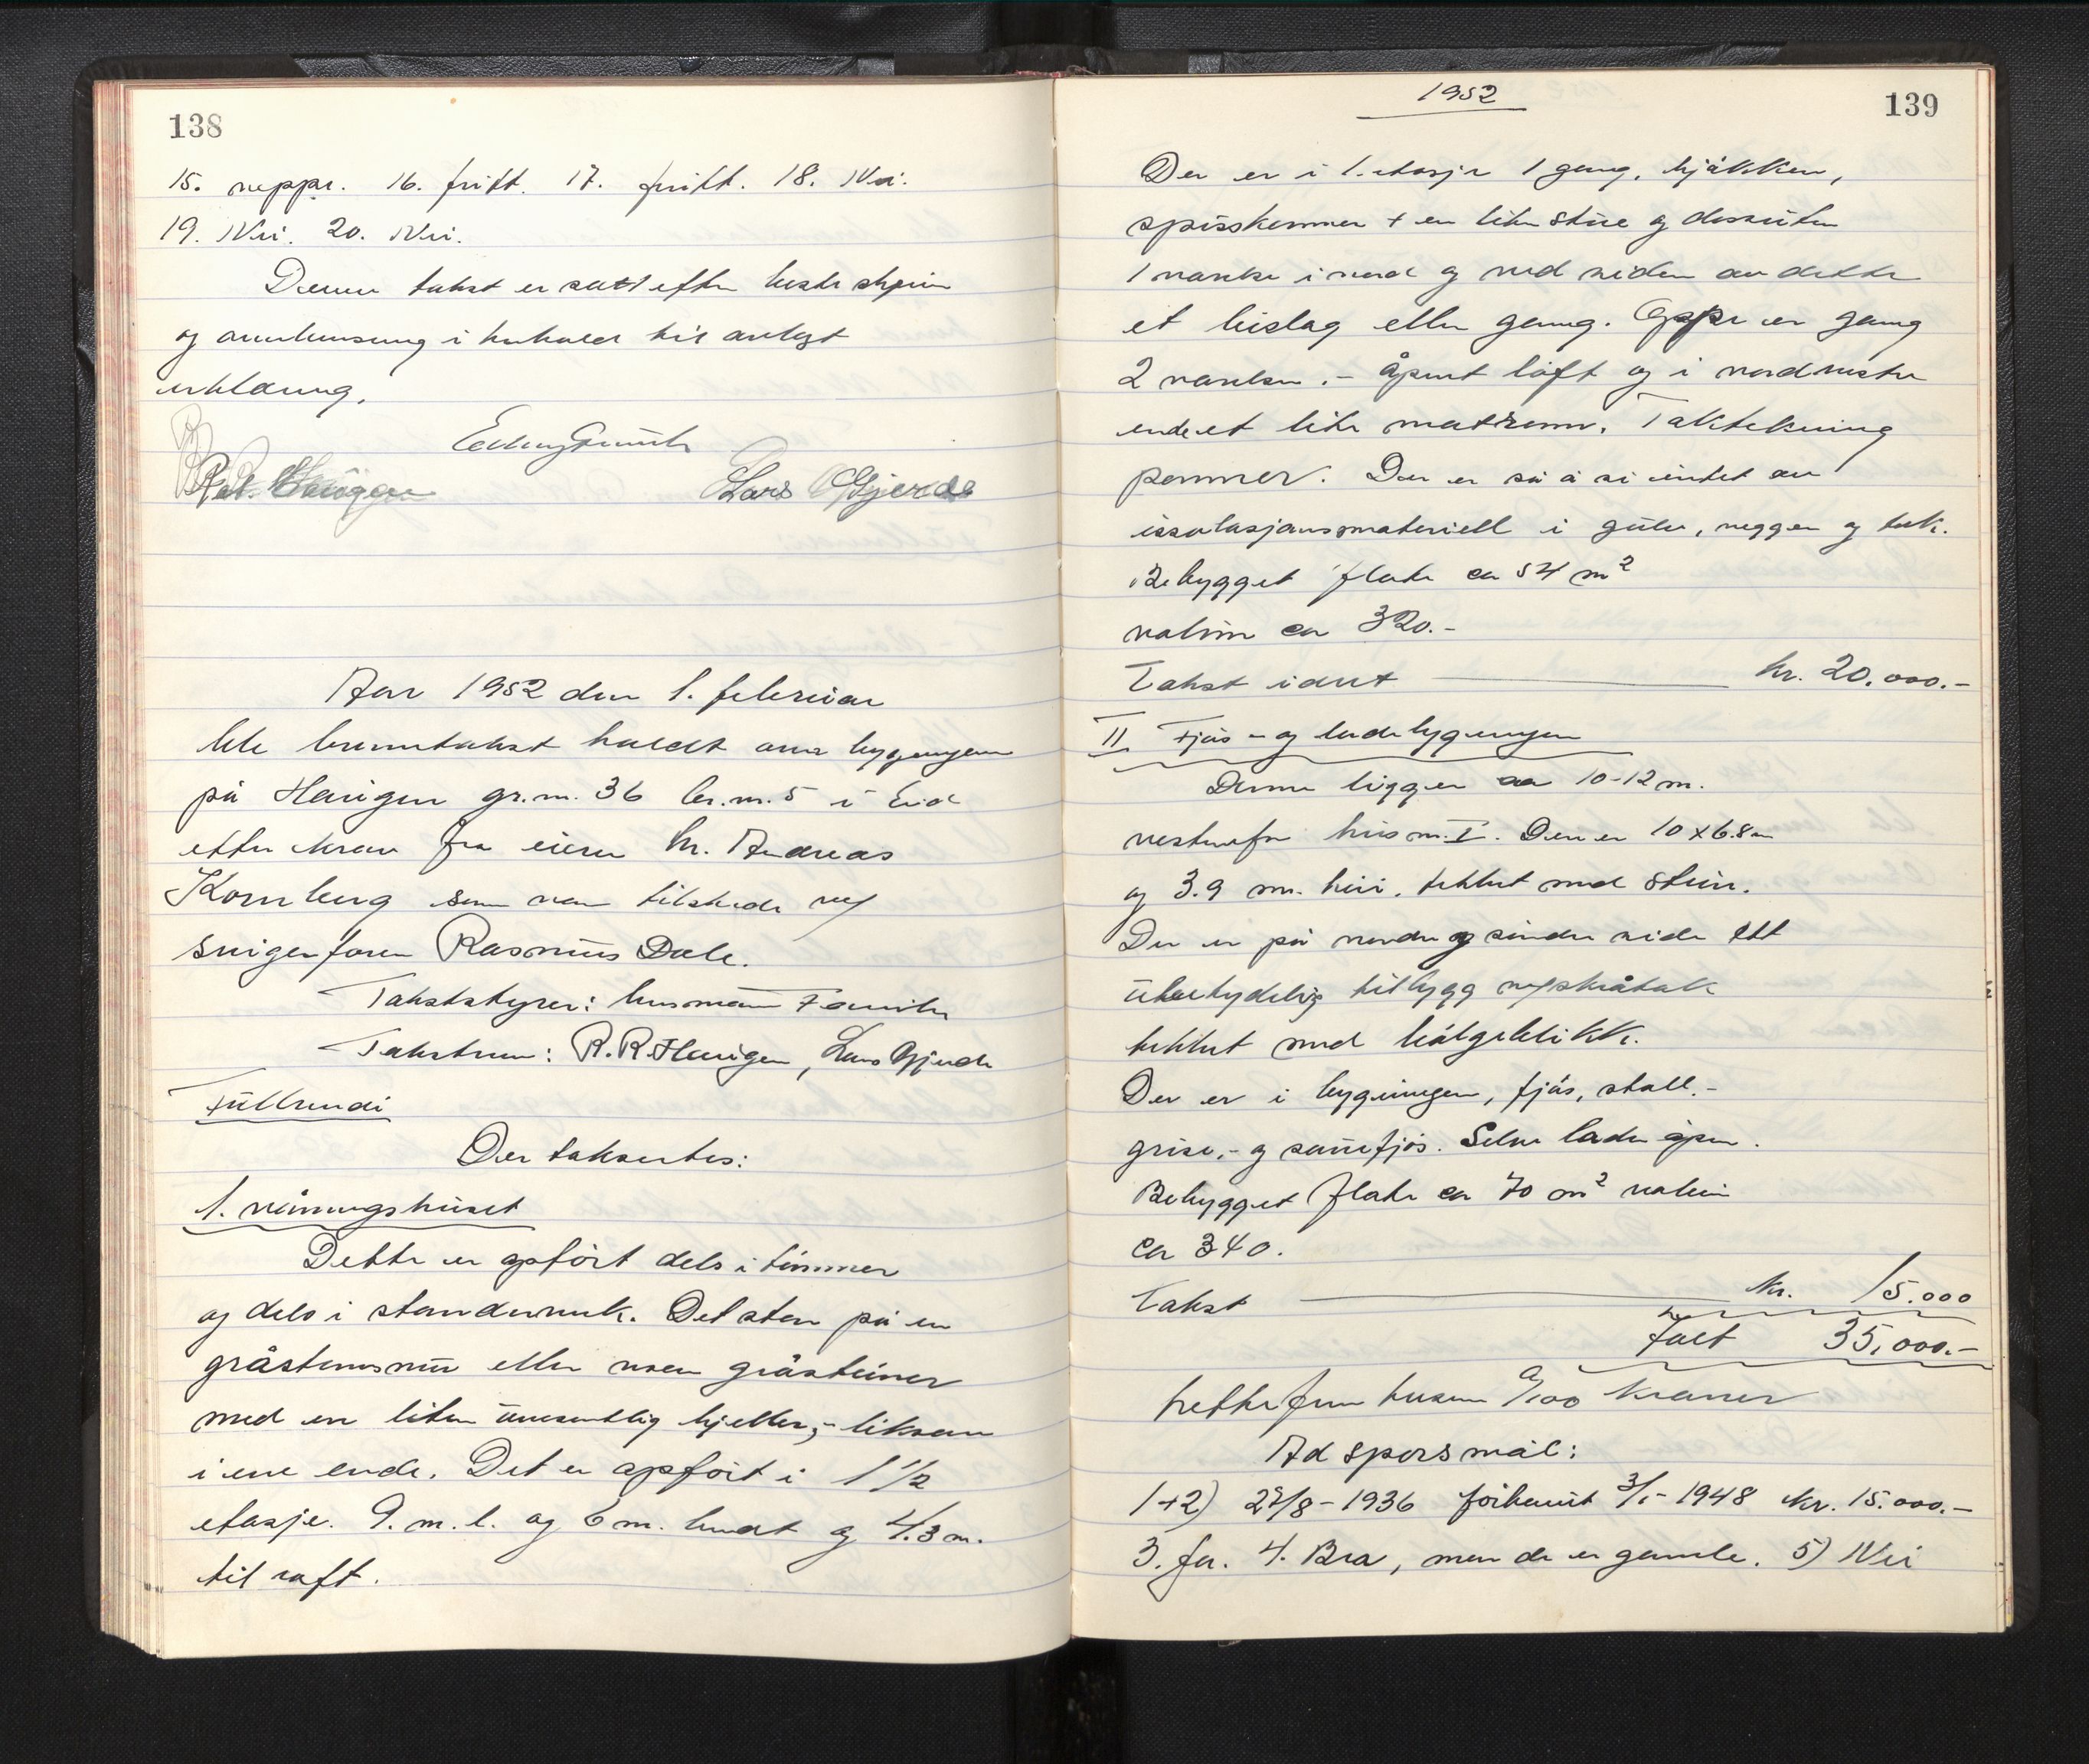 138
15. neppe. 16. fritt. 17. fritt. 18. Nei.
19. Nei. 20. Nei.
Denne takst er satt efter beste skjøn
og overbevisning i henhold til avlagt
erklæring.
R. R. Haugen Lars Gjerde
Aar 1952 den 1. februar
ble branntakst holdt over bygningene
på Haugen gr.nr. 36 br.nr. 5 i Eid
etter krav fra eieren hr. Andreas
Kornberg som var tilstede m/
svigerfaren Rasmus Dale.
Takststyrer: lensmann
Takstmenn: R. R. Haugen, Lars Gjerde
Der taksertes:
1. våningshuset
Dette er opført dels i tømmer
og dels i stenderverk. Det står på en
gråstensmur eller noen gråsteiner
med en liten uvesentlig kjeller,- liksom
i ene ende. Det er opført i 1 1/2
etasje. 9. m. l. og 6 m. bredt og 4.3 m.
til raft.
1952
139
Der er i 1. etasje 1 gang, kjøkken,
spisskammer + en liten stue og dessuten
1 værelse i nord og ved siden av dette
et bislag eller gang. Oppe er gang
2 værelser.- åpent loft og i nordvestre
ende et lite matrom. Taktekning
panner. Der er så å si intet av
issolasjonsmateriell i gulv, vegger og tak.
Bebygget flate ca 54 m²
volum ca 320.-
Takst idnt kr. 20.000.-
II Fjøs - og ladebygningen
Denne ligger ca 10-12 m.
vestenfor hus nr. I. Den er 10 x 6.8 m
og 3.9 m. høi. tekket med stein.
Der er på nordre og søndre side ett
ubetydelig tilbygg m/skråtak
tekket med bølgeblikk.
Der er i bygningen, fjøs, stall.-
grise,- og sauefjøs. Selve laden åpen.
Bebygget flate ca 70 m² volum
ca 340.
Takst kr. 15.000
Talt 35.000.-
trettifem tusen 0/100 kroner
Ad spørsmål:
1+2) 27/8 - 1936 forhøiet 3/5 - 1948 kr. 15.000.-
3. Ja. 4. Bra, men de er gamle. 5) Nei